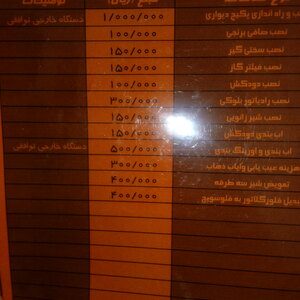 ب و راه اندازی پکیج دیواری ۱/۰۰۰/۰۰۰ دستگاه خارجی توافقی
نصب صافی برنجی ۱۰۰/۰۰۰
نصب سختی گیر ۱۵۰/۰۰۰
نصب فیلتر گاز ۱۵۰/۰۰۰
نصب دودکش ۱۰۰/۰۰۰
نصب رادیاتور بلوکی ۳۰۰/۰۰۰
نصب شیر زانویی ۱۵۰/۰۰۰
اب بندی دودکش ۱۵۰/۰۰۰
اب بندی و اورینگ بندی ۵۰۰/۰۰۰ دستگاه خارجی توافقی
هزینه عیب یابی و ایاب ذهاب ۳۰۰/۰۰۰
تعویض شیر سه طرفه ۴۰۰/۰۰۰
تبدیل فلوزگلاتور به فلوسویچ ۴۰۰/۰۰۰